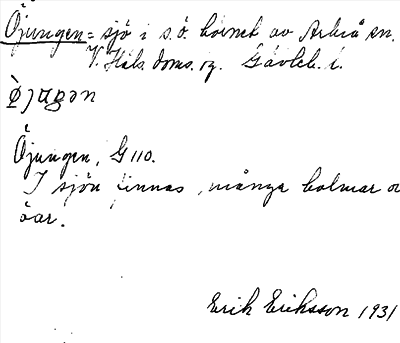 Öjungen = sjö i s.ö. hörnet av Arbrå sn.
V. Häls. doms. sg. Gävleb. l.
Öjungen, G 110.
I sjön finnas många holmar o
öar.
Erik Eriksson 1931